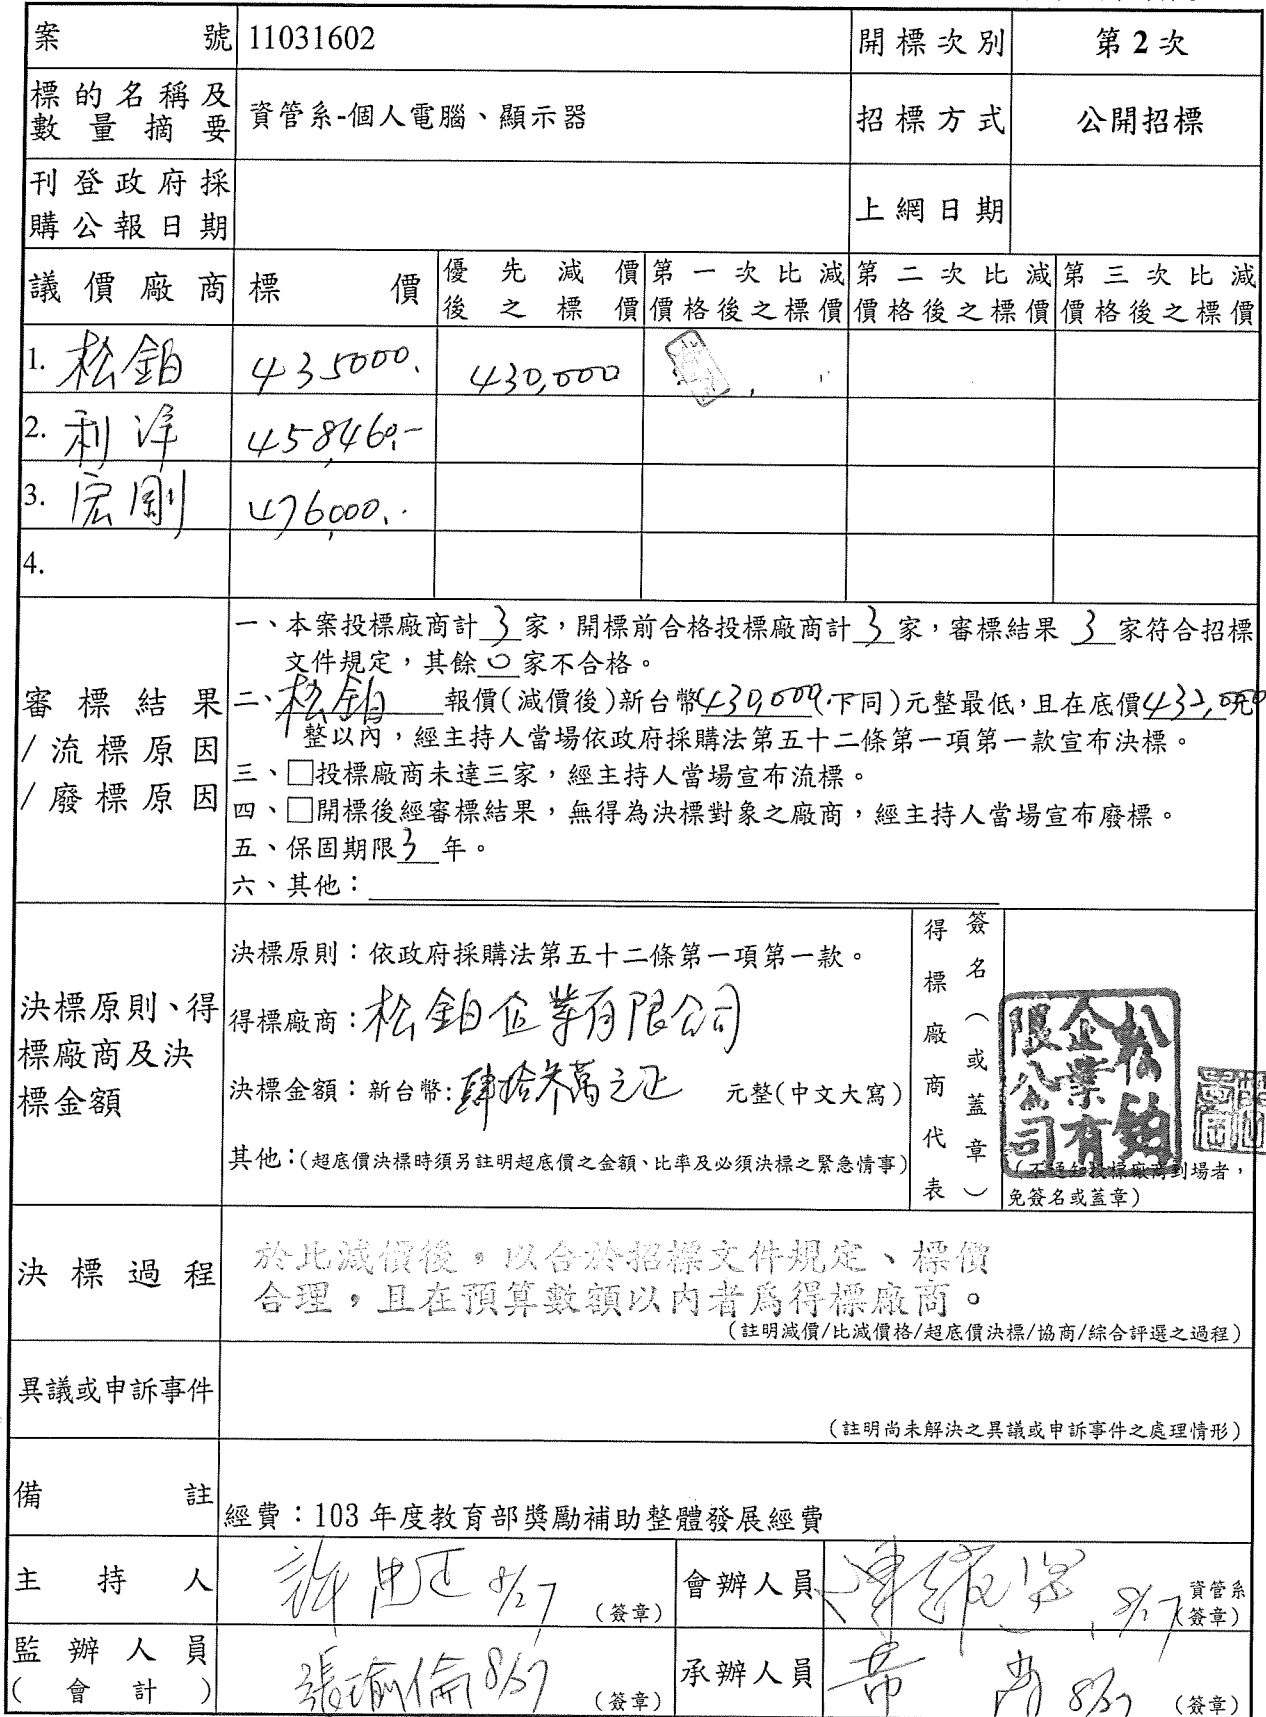 案號 11031602 開標次別 第2次
標的名稱及
數量摘要 資管系-個人電腦、顯示器 招標方式 公開招標
刊登政府採
購公報日期 上網日期
議價廠商 標價 優先減價 第一次比減 第二次比減 第三次比減
後之標價 價格後之標價 價格後之標價 價格後之標價
1. 松鉑 435000. 430,000
2. 利洋 458,460.-
3. 宏剛 476,000.
4.
一、本案投標廠商計3家,開標前合格投標廠商計3家,審標結果3家符合招標
文件規定,其餘0家不合格。
審標結果 二、松鉑 報價(減價後)新台幣430,000(下同)元整最低,且在底價432,000元
/流標原因 整以內,經主持人當場依政府採購法第五十二條第一項第一款宣布決標。
/廢標原因 三、□投標廠商未達三家,經主持人當場宣布流標。
四、□開標後經審標結果,無得為決標對象之廠商,經主持人當場宣布廢標。
五、保固期限3年。
六、其他:
決標原則、得
標廠商及決
標金額
決標原則:依政府採購法第五十二條第一項第一款。
得標廠商:松鉑企業有限公司
決標金額:新台幣:肆拾參萬元正 元整(中文大寫)
其他:(超底價決標時須另註明超底價之金額、比率及必須決標之緊急情事)
得標廠商代表
簽名(或蓋章)
松鉑企業有限公司
(不通知投標廠商到場者,
免簽名或蓋章)
決標過程 於比減價後,以合於招標文件規定、標價
合理,且在預算數額以內者為得標廠商。
(註明減價/比減價格/超底價決標/協商/綜合評選之過程)
異議或申訴事件
(註明尚未解決之異議或申訴事件之處理情形)
備註 經費:103年度教育部獎勵補助整體發展經費
主持人 8/27 (簽章) 會辦人員 8/27 資管系
(簽章)
監辦人員
(會計) 張瑜倫 8/27 (簽章) 承辦人員 8/27 (簽章)